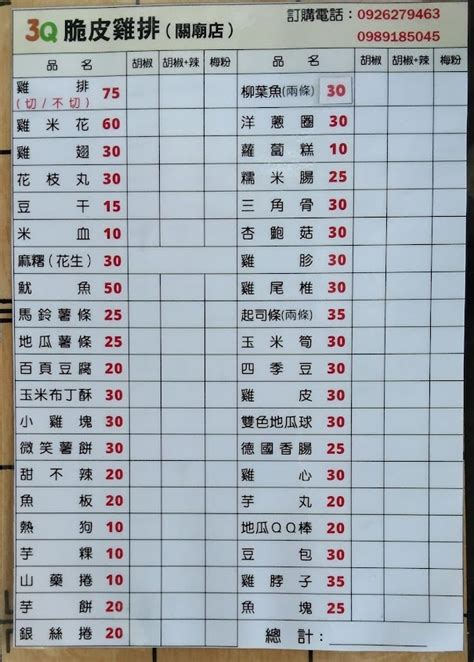 3Q 脆皮雞排(關廟店)
訂購電話：0926279463
0989185045
品 名 胡椒 胡椒+辣 梅粉
雞 排 (切/不切) 75
雞 米 花 60
雞 翅 30
花 枝 丸 30
豆 干 15
米 血 10
麻糬(花生) 30
魷 魚 50
馬 鈴 薯 條 25
地 瓜 薯 條 25
百 頁 豆 腐 20
玉米布丁酥 30
小 雞 塊 30
微 笑 薯 餅 30
甜 不 辣 20
魚 板 20
熱 狗 10
芋 粿 10
山 藥 捲 10
芋 餅 20
銀 絲 捲 20
品 名 胡椒 胡椒+辣 梅粉
柳葉魚(兩條) 30
洋 蔥 圈 30
蘿 蔔 糕 10
糯 米 腸 25
三 角 骨 30
杏 鮑 菇 30
雞 胗 30
雞 尾 椎 30
起司條(兩條) 35
玉 米 筍 30
四 季 豆 30
雞 皮 30
雙色地瓜球 30
德 國 香 腸 25
雞 心 30
芋 丸 20
地瓜QQ棒 20
豆 包 30
雞 脖 子 35
魚 塊 25
總 計：